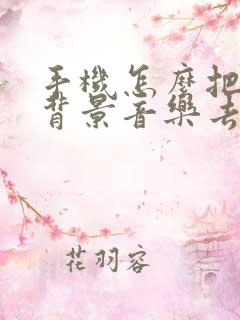 手機怎麼把
背景音樂去
花羽容